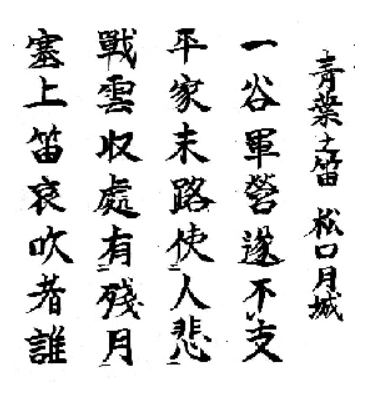 青葉之笛 松口月城
一谷軍營遂不支
平家末路使人悲
戰雲収處有殘月
塞上笛哀吹者誰